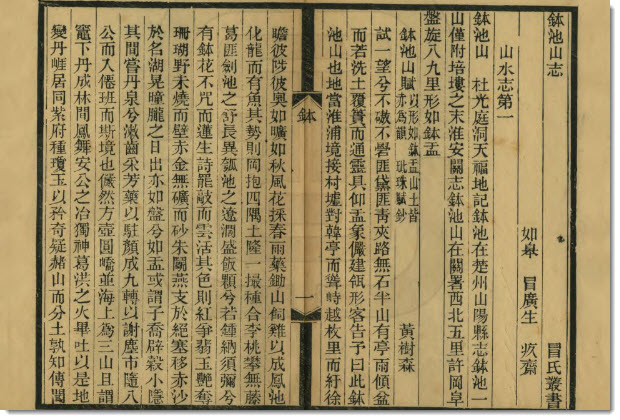 鉢池山志 冒氏叢書
如皋 冒廣生 疚齋
山水志第一
鉢池山 杜光庭洞天福地記鉢池在楚州山陽縣志鉢池一
山僅附培塿之末淮安關志鉢池山在關署西北五里許岡阜
盤旋八九里形如鉢盂
鉢池山賦 以形如鉢盂山土皆赤為韻 珠賦鈔 黃樹森
試一望兮不磝不礐匪黛匪青夾路無石半山有亭雨傾盆
而若洗土覆簣而通靈具仰盂象儼建瓴形客告予曰此鉢
池山也地當淮浦境接村墟對韓亭而聳峙越枚里而紆徐
鉢
一
瞻彼陟彼興如曠如秋風花採春雨藥鋤山飼雞以成鳳池
化龍而有魚其勢則岡抱四隅土隆一撮種合李桃攀無藤
葛匪劍池之舒長異瓢池之遼濶盛飯顆兮若鍾納須彌兮
有鉢花不咒而蓮生詩罷敲而雲活其色則紅爭翡玉艷奪
珊瑚野未燒而壁赤金無礦而砂朱關燕支於絕塞移赤沙
於名湖晃曈朧之日出亦如盤兮如盂或謂子喬辟穀小隱
其間嘗丹泉兮漱齒采芳藥以駐顏成九轉以謝塵市隨八
公而入僊班而斯境也儼然方壺圓嶠並海上為三山且謂
竈下丹成林間鳳舞安公之冶獨神葛洪之火畢吐以是地
變丹崕居同紫府種瓊玉以矜奇疑赭山而分土孰知傳聞